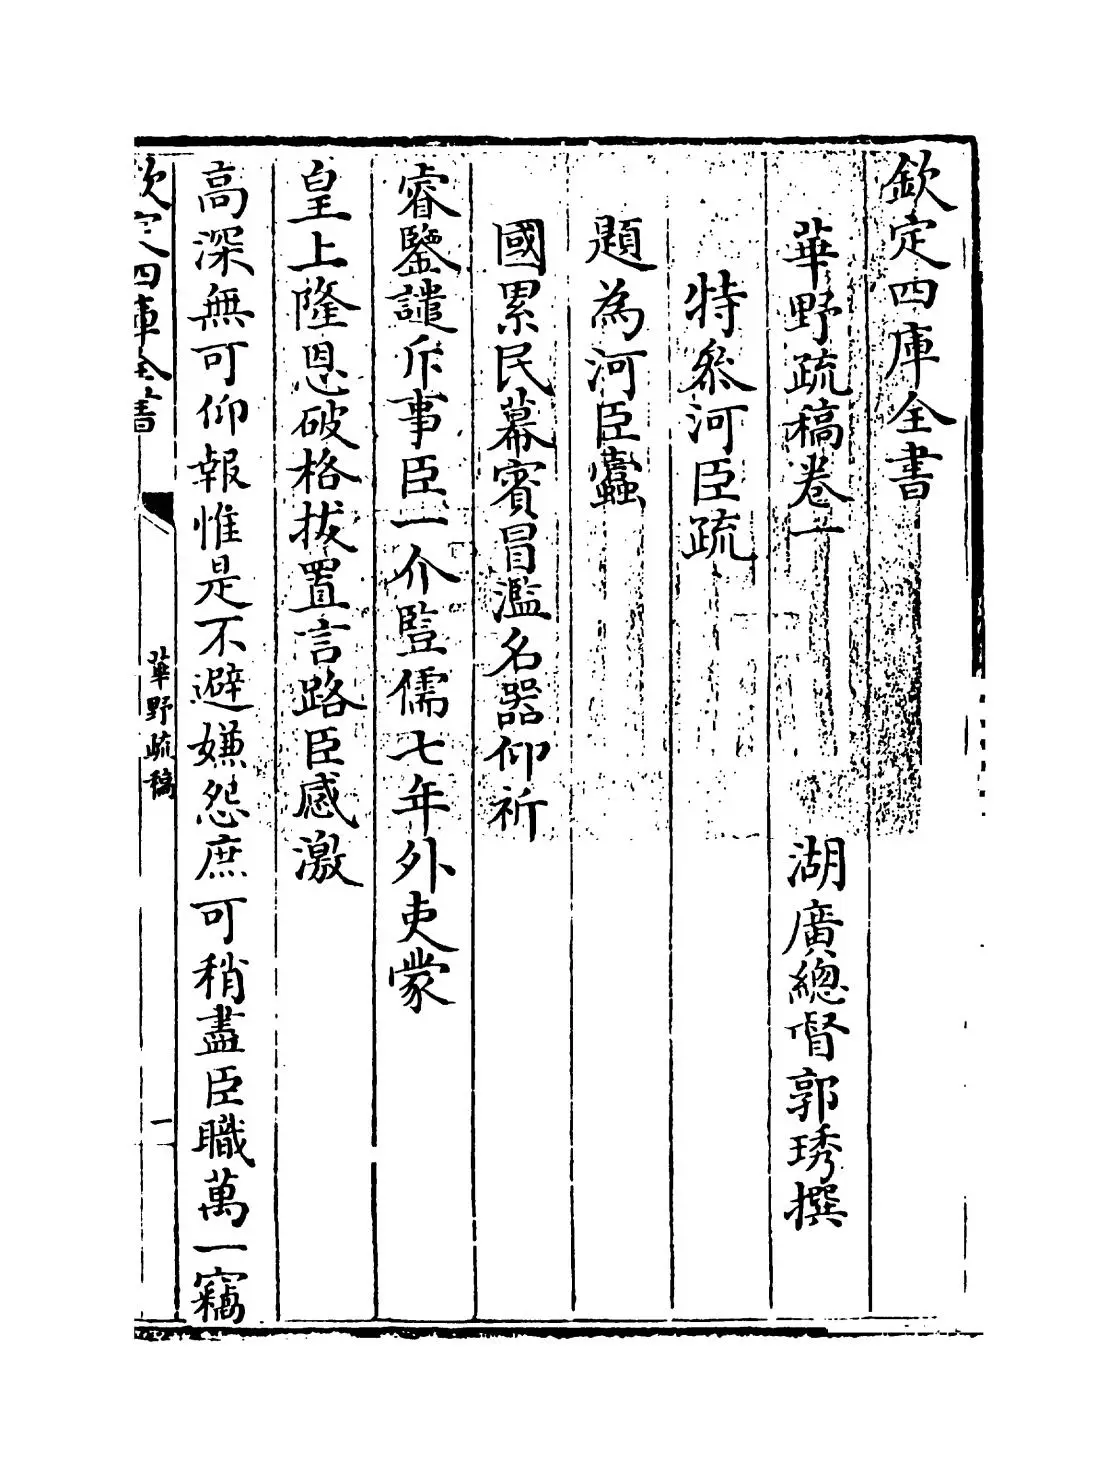 欽定四庫全書
華野疏稿卷一
湖廣總督郭琇撰
特叅河臣疏
題為河臣蠹
國累民幕賓冒濫名器仰祈
睿鑒譴斥事臣一介竪儒七年外吏蒙
皇上隆恩破格拔置言路臣感激
高深無可仰報惟是不避嫌怨庶可稍盡臣職萬一竊
欽定四庫全書
華野疏稿
一